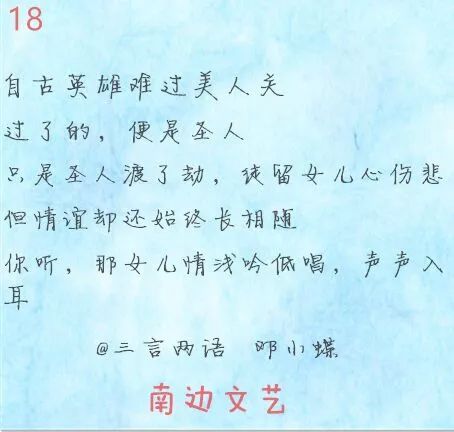 18
自古英雄难过美人关
过了的，便是圣人
只是圣人渡了劫，徒留女儿心伤悲
但情谊却还始终长相随
你听，那女儿情浅吟低唱，声声入
耳
@三言两语 邓小蝶
南边文艺